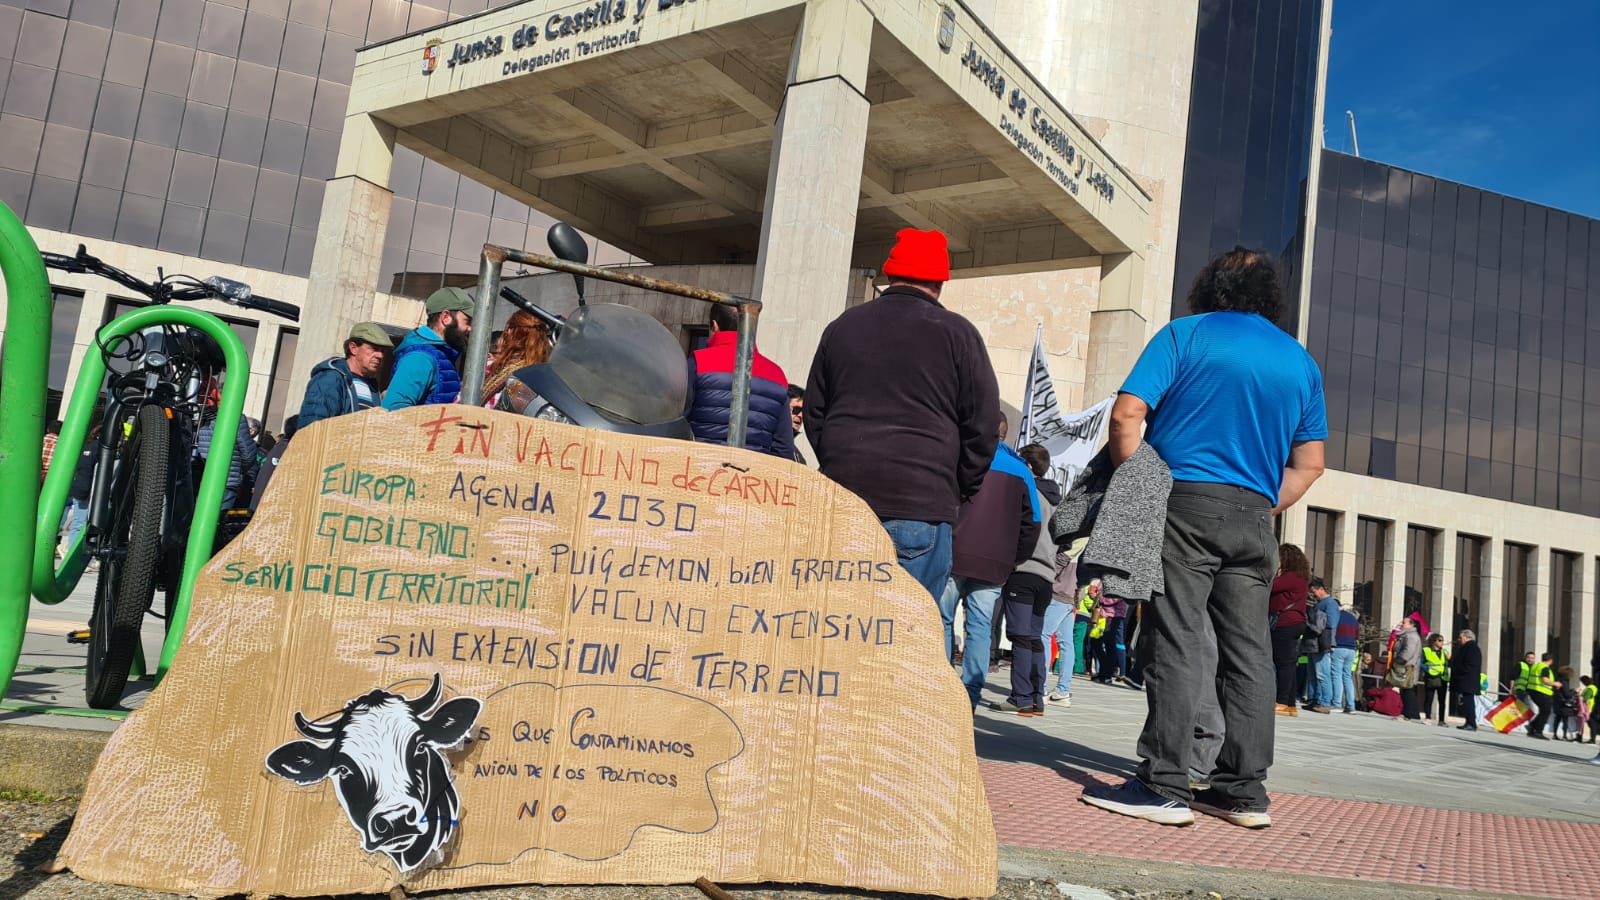 Junta de Castilla y
Delegación Territorial
Junta de Castilla y León
Delegación Territorial
FIN VACUNO de CARNE
EUROPA: AGENDA 2030
GOBIERNO: ..., PUIGdEMON, biEN GRACIAS
SERVICIO TERRITORIAL: VACUNO EXTENSIVO
SIN EXTENSIÓN DE TERRENO
QUE CONTAMINAMOS
AVION DE LOS POLÍTICOS
NO